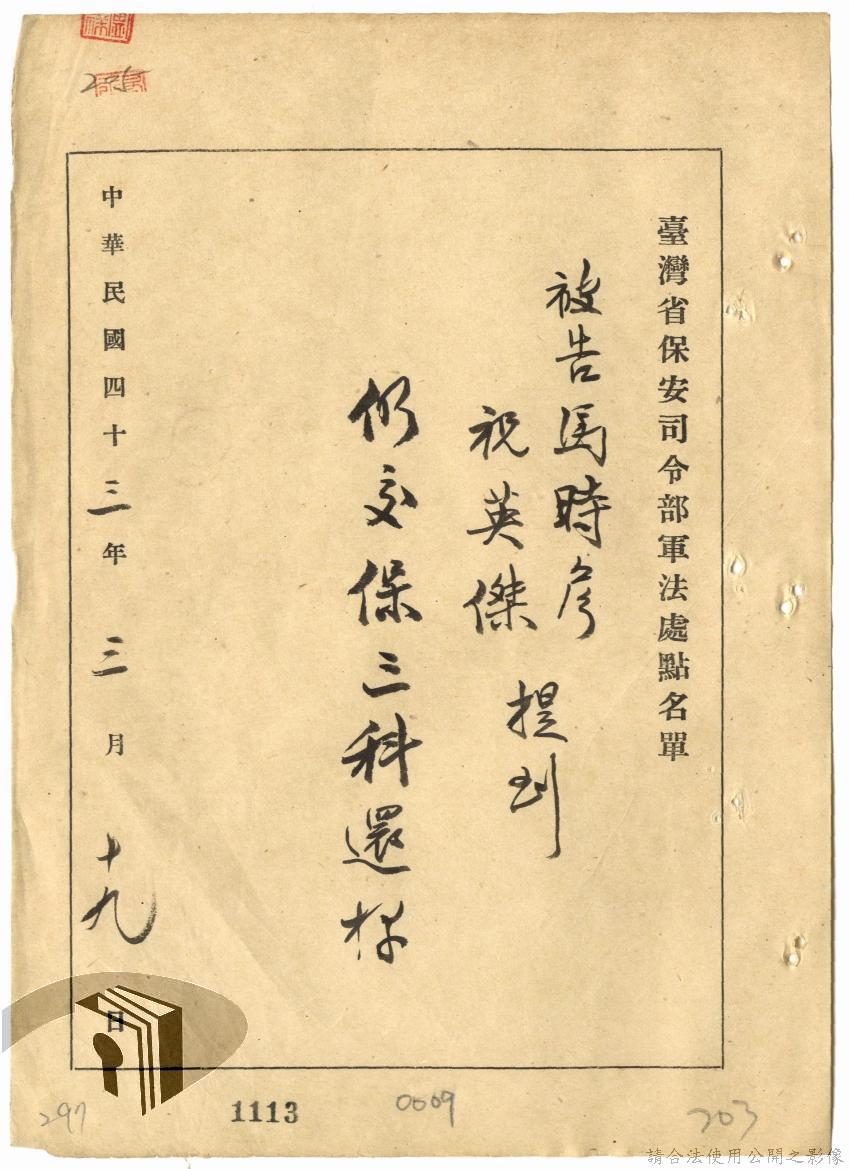 臺灣省保安司令部軍法處點名單
被告馬時彥
祝英傑
提到
仍交保三科還押
中華民國四十三年三月十九日
297
1113
0009
203
請合法使用公開之影像